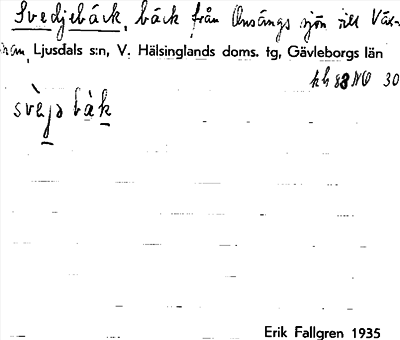 Svedjebäck, bäck från Onsängs sjön till Väs-
nan, Ljusdals s:n, V. Hälsinglands doms. tg, Gävleborgs län
kb 83 NO 30
svèjə bàk
Erik Fallgren 1935